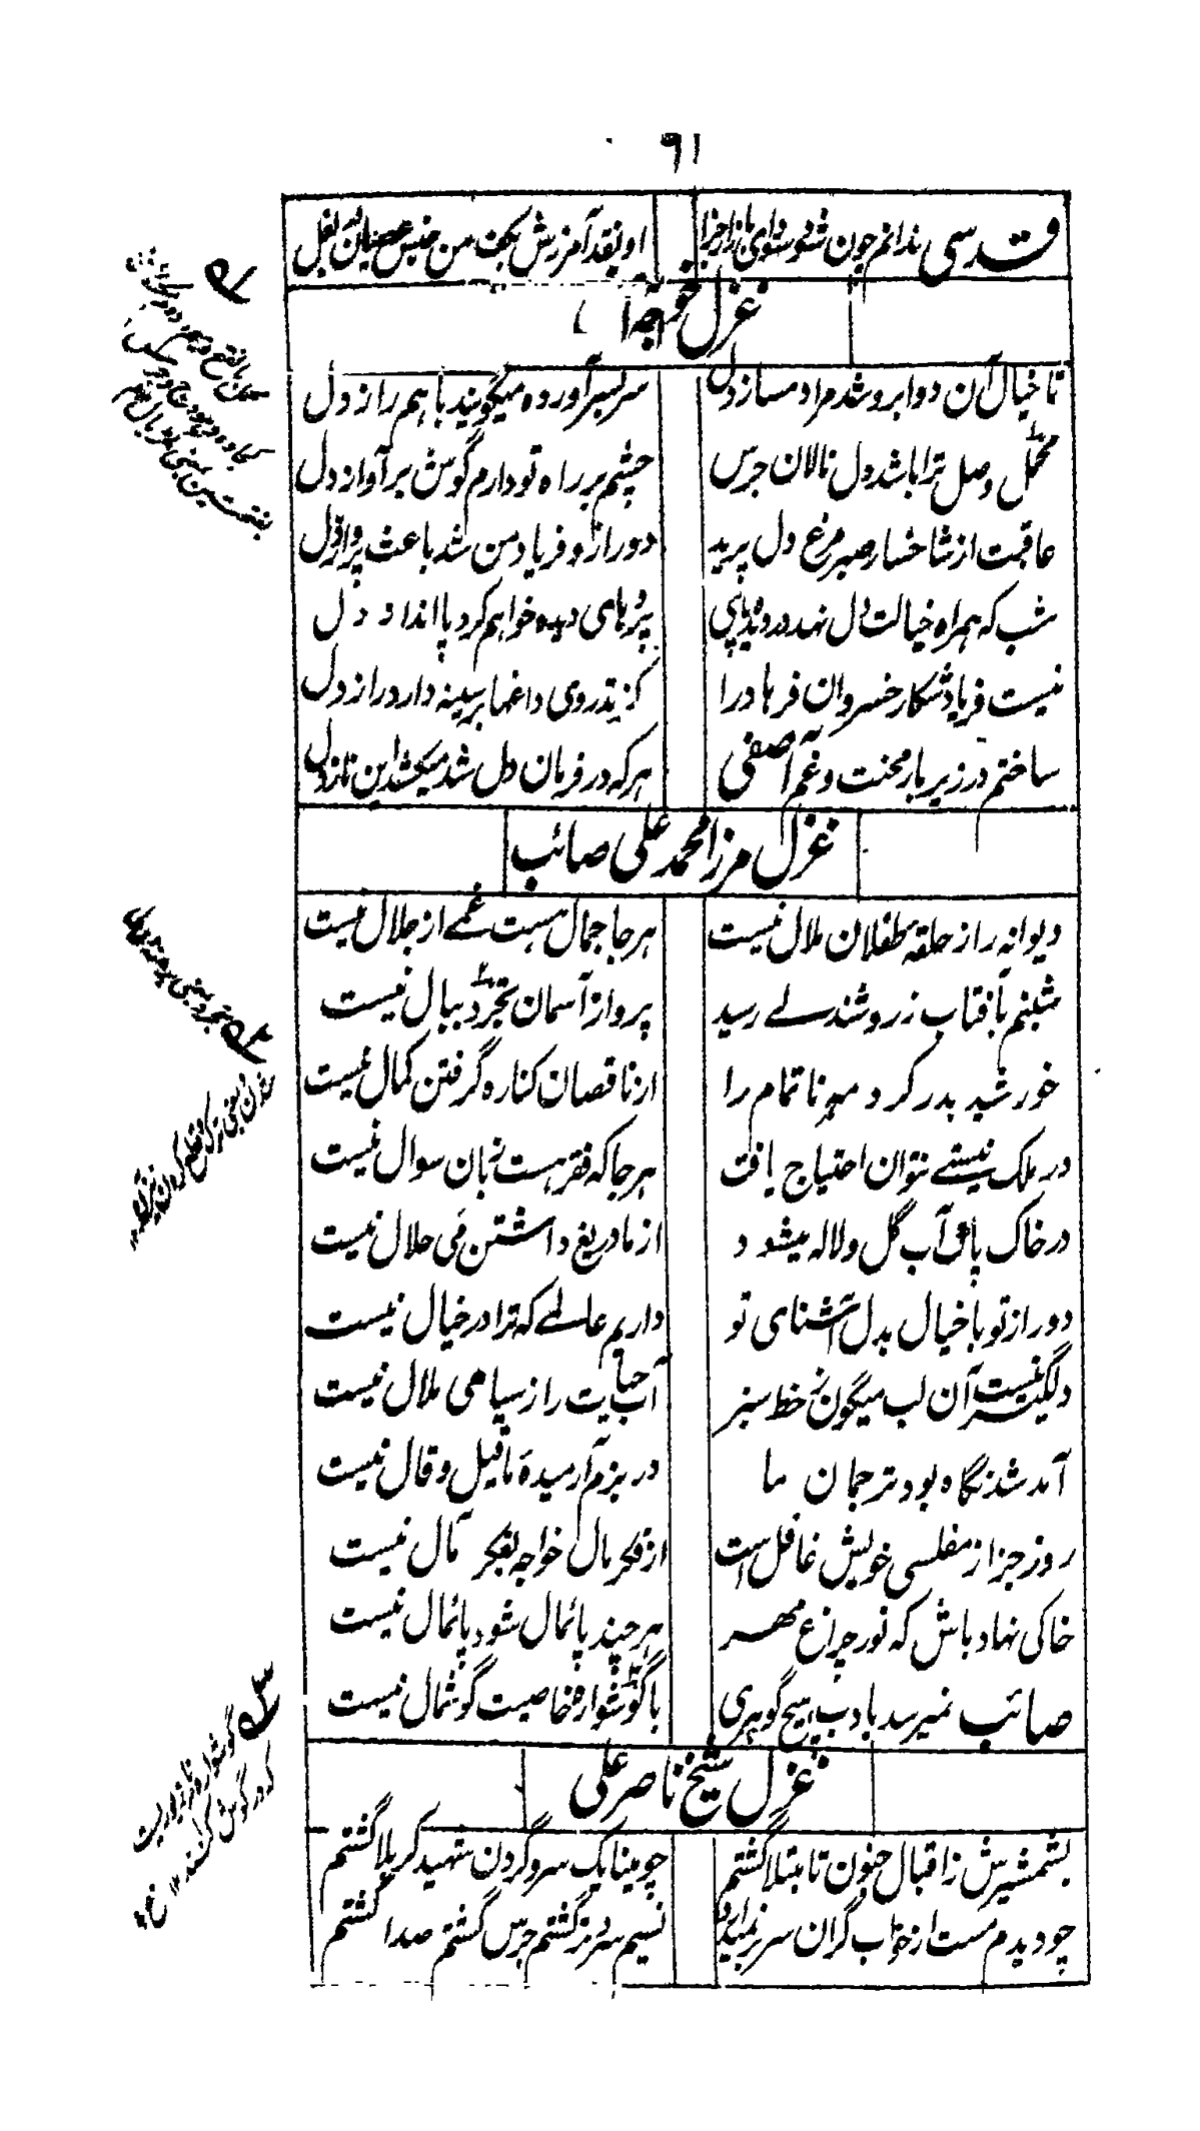 ۹۱
قدسی ندانم چون شود سودای بازار جزا او نقد آمرزش بکف من جنس عصیان در بغل
غزل خواجه آ
تا خیال آن دو ابرو شد مرا دمساز دل سر بسر آورده میگویند با هم راز دل
محمل وصل ترا باشد دل نالان جرس چشم بر راه تو دارم گوش بر آواز دل
عاقبت از شاخسار صبر مرغ دل پرید دور از و فریاد من شد باعث پرواز دل
شب که همراه خیالت دل نهد در دیده پای پردهای دیده خواهم کرد پا انداز دل
نیست فریاد شکار خسروان فرهاد را کز تذروی داغها بر سینه دارد باز دل
ساختم در زیر بار محنت و غم آصفی هر که در فرمان دل شد میکشد این ناز دل
غزل مرزا محمد علی صائب
دیوانه را ز حلقه طفلان ملال نیست هر جا جمال هست غمے از جلال نیست
شبنم بآفتاب ز روشندلے رسید پرواز آسمان تجرد ببال نیست
خورشید بدر کرد مه ناتمام را از ناقصان کناره گرفتن کمال نیست
در ملک نیستے نتوان احتیاج یافت هر جا که فقر هست زبان سوال نیست
در خاک پاک آب گل و لاله میشود از ما دریغ داشتن می حلال نیست
دور از تو با خیال بدل آشنای تو داریم عالمے که ترا در خیال نیست
دلگیر نیست آن لب میگون ز خط سبز آب حیات را ز سیاهی ملال نیست
آمد شد نگاه بود ترجمان ما در بزم آرمیدهٔ ما قیل و قال نیست
روز جزا ز مفلسی خویش غافل است از فکر مال خواجه بفکر مآل نیست
خاکی نهاد باش که نور چراغ مهر هر چند پائمال شود پائمال نیست
صائب نمیرسد بادب هیچ گوهری با گوشواره خاصیت گوشمال نیست
غزل شیخ ناصر علی
بشمشیرش ز اقبال جنون تا مبتلا گشتم چو مینا یک سر و گردن شهید کربلا گشتم
چو دیدم مست از خواب گران سر بر نمیدارد نسیم سرد بر گشتم جرس گشتم صدا گشتم
گوشواره زیوریست
که در گوش کنند ۱۲